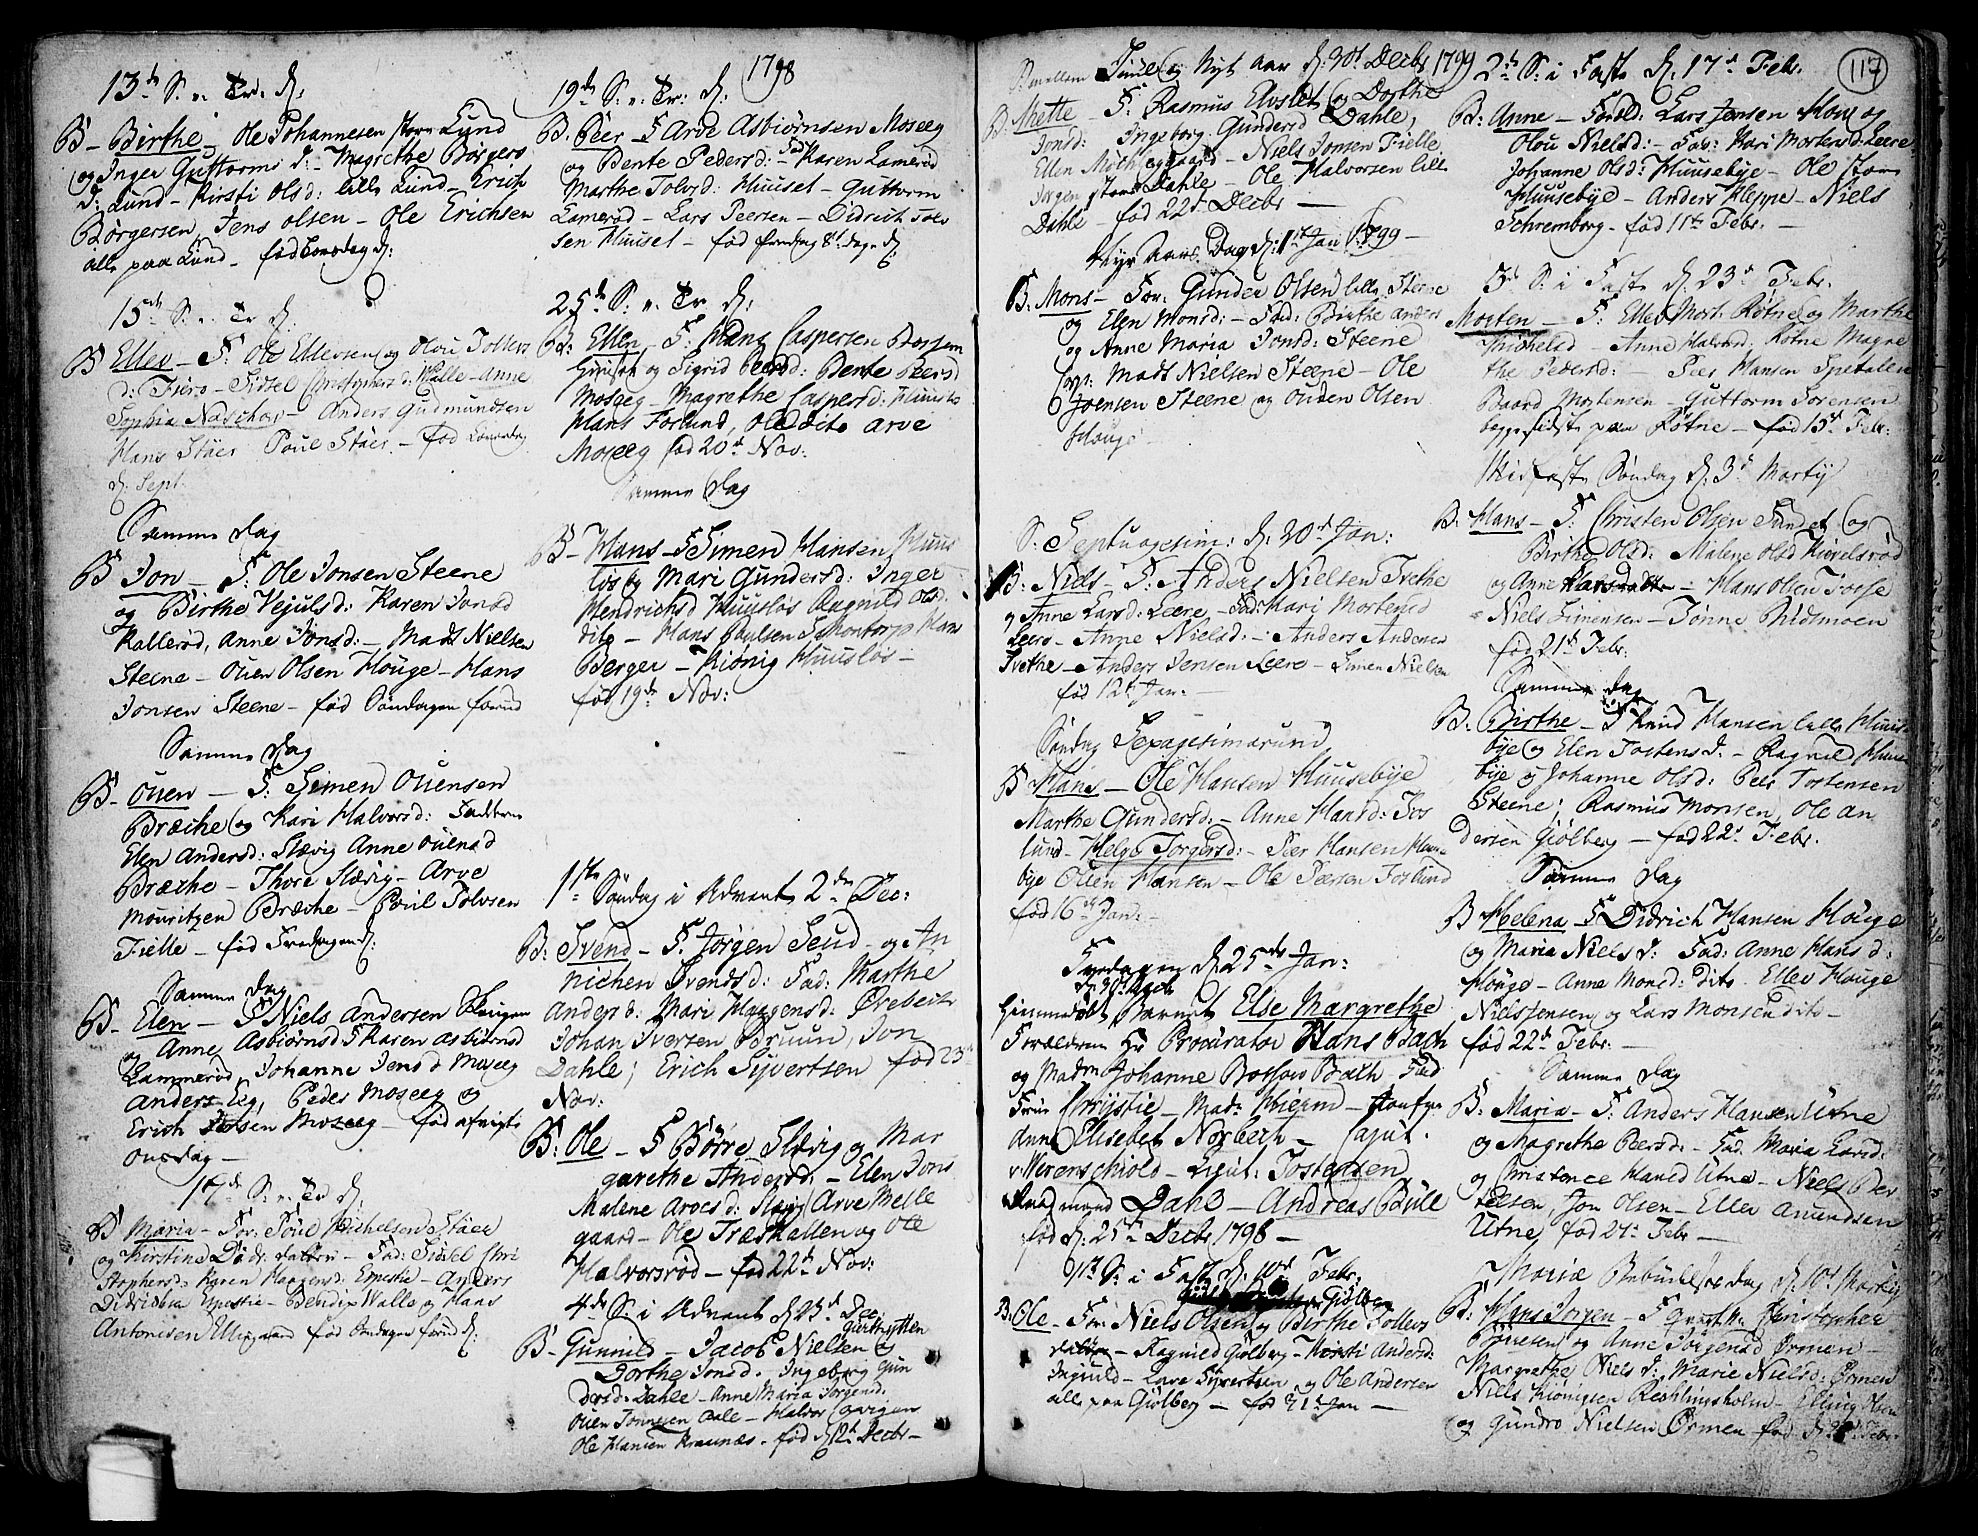 1798
13de S. e. Tr. d:
B- Birthe, Ole Johannesen store Lund
og Inger Guttorms d: - Magrethe Børgers
d: Lund - Kirsti Olsd: lille Lund - Erich
Børgersen, Jens Olsen - Ole Erichsen
alle paa Lund - fød Torsdag d:
15de S. e. Tr d:
B Ellev - F: Ole Ellevsen og Olou Tollevs
d: - Sidsel Christophersd: Walle - Anne
Sophia - Anders Gudmundsen
Hans Støer Poul Støer - fød
d: Sept.
Samme dag
B Jon - F: Ole Jonsen Steene
og Birthe Vejulsd: Karen Jonsd
Kallerød, Anne Jonsd: - Mads Nielsen
Steene - Ouen Olsen Houge - Hans
Jonsen Steene - fød Søndagen forud
Samme dag
B- Ouen - F: Simen Ouensen
Bræche og Kari Halvorsd: Faddere
Elen Andersd: Slævig Anne Ouensd
Bræche - Thore Slævig - Arve
Mouritzen Bræche - Poul Tolvsen
Fielle - fød Fredagen d:
Samme dag
B- Elen - F Niels Andersen
og Anne Asbiørnsd F Karen Asbiørnsd
Lammerød, Johanne Jensd Moseeg
Anders Eeg, Peder Moseeg og
Erich Moseeg - fød afvigte
Onsdag -
17de S. e. Tr d:
B Maria - For: Poul Michelsen Støer
og Kirstine Didr. datter - Fad: Sidsel Chri
stophersd: Karen Haagensd: - Anders
Didrichsen - Bendix Walle og Hans
Antonisen Ellingaard fød Onsdagen forud d:
19de S. e. Tr: d:
B. Peer - F Arve Asbiørnsen Moseeg
og Bente Pedersd: Fad Karen Lamerød
Marthe Tolvsd: Huusel - Guttorm
Lamerød - Lars Peersen - Didrich Tolv
sen Huusel - fød fredag 8te dage d:
25de S. e. Tr d:
B: Ellen - F. Hans Caspersen Bossum
og Sigrid Peersd: Bente Peersd
Moseeg - Magrethe Caspersd:
Hans Forlund, Ole dito Arve
Moseeg fød 20de Nov:
Samme dag
B- Hans - F Simen Hansen Huus
løs og Mari Gundersd: Inger
Hendrichsd Huusløs Ragnild Olsd:
dito - Hans Paulsen Hans
Berger - Kiønig Huusløs -
fød 19de Nov:
1ste Søndag i Advent 2den Dec:
B: Svend - F. Jørgen Seud - og An
nichen Svendsd: Fad: Marthe
Andersd: Mari Haagensd: Ørebech
Johan Iversen Bruun, Jon
Dahle; Erich Syvertsen fød 23de
Nov:
B: Ole - F Børre Slævig og Mar
garethe Andersd: - Elen Jons
Malene Arvesd: Slævig Arve Melle
gaard - Ole Træskallen og Ole
Halvorsrød - fød 22de Nov:
4de S: i Advent d: 23de Dec:
B- Gunnild - Jacob Nielsen
Dorthe Jonsd. Ingeborg Gun
dersd: Dahle - Anne Maria Jørgensd:
Ouen Tønnesen Dale - Halvor
Ole Hansen - fød d: 12te Decbr -
117
Søn mellem Juul og Nyt aar d: 30te Decbr 1799
B: Mette - F: Rasmus og Dorthe
Jonsd: Ingeborg Gundersd Dahle,
Ellen - Niels Jonsen Fielle
Jørgen store Dahle - Ole Halvorsen lille
Dahle - fød 22de Decbr -
Nyt Aars Dag d: 1te Jan 1799 -
B: Mons - For: Gunder Olsen lille Steene
og Elen Monsd: - Fad: Birthe Anders
og Anne Maria Jonsd: Steene
Mads Nielsen Steene - Ole
Joensen Steene og Ouden Olsen
Houge
S: Septuagesim: d: 20de Jan:
B: Niels - F: Anders Nielsen Tvethe
og Anne Larsd: Leere - Fad: Mari Mortensd
Leere - Anne Nielsd: - Anders Andersen
Tvethe - Anders Jensen Leere - Simen Nielsen
fød 12te Jan: -
Søndag Sexagesima
B Hans - Ole Hansen Huusebye
Marthe Gundersd: - Anne Hansd: Fos
lund - Helge Torgersd: - Peer Hansen Huuse
bye Ouen Hansen - Ole Peersen Foslund
fød 16de Jan: -
Fredagen d: 25de Jan:
Hjemmedøbt Barnet Else Margrethe
Forældrene Hr Procurator Hans Bach
og Madm Johanne Bossow Bach Fad
Frue - Madm Hiermd - Jomfrue
Anne Elisebet Norbech - Capit.
v: Werenschiold - Capit: Tostensen
Dahl - Andreas Bull
fød d: 25de Decbr 1798 -
1te S: i Faste d: 10de Febr:
B: Ole - For: Niels Olsen og Birthe Tollevs
datter - Ragnild Giølberg - Kirsti Andersd:
Lars Syvertsen, og Ole Andersen
alle paa Giølberg - fød 31te Jan -
2de S: i Faste d: 17de Febr.
B: Anne - Foreld: Lars Jensen Houg og
Olou Nielsd: - Fad: Kari Mortensd: Leere
Johanne Olsd: Huusebye - Ole store
Huusebye - Anders Heppe - Niels
Schremberg - fød 11te Febr. -
3de S: i Faste d: 23de Febr.
Morten - F: Ellev Mort: Røtne og Marthe
Michelsd - Anne Halvorsd: Røtne Magre
the Pedersd: - Peer Hansen Spetalen
Baard Mortensen - Guttorm Sørensen
begge sidste paa Røtne - fød 15de Febr:
Midfaste Søndag d: 3de Martij
B: Hans - F: Christen Olsen Sundet og
Birthe Olsd: Malene Olsd
og Anne Larsdatter - Hans Olsen
Niels Simensen - Tønne
fød 21de Febr:
Samme dag
B: Birthe - F Knud Hansen lille Huuse
bye og Elen Tostensd: - Ragnild Huuse
bye og Johanne Olsd: Peer Tostensen
Steene; Rasmus Monsen, Ole An
dersen Giølberg - fød 22de Febr.
Samme dag
B Helena - F Didrich Hansen Houge
og Maria Nielsd: Fad: Anne Hansd:
Houge - Anne Monsd: Dito. Ellev Houge
Niels Jensen og Lars Monsen dito -
fød 22de Febr: -
Samme dag
B: Maria - F. Anders Hansen Utne
og Magrethe Peersd: - Fad: Maria Larsd:
og Christence Hansd Utne - Niels Peer
sen, Jon Olsen - Ellev Amundsen
Utne, fød 24de Febr -
Mariæ Bebudelses dag d: Martij
B: Hans Jørgen - F Christopher
og Anne Jørgensd Ørmen -
Margrethe Nielsd: Marie Nielsd: Ørmen
Niels Kiønigsen - Elling Olsen
og Gundro Nielsen Ørmen fød d: Febr.